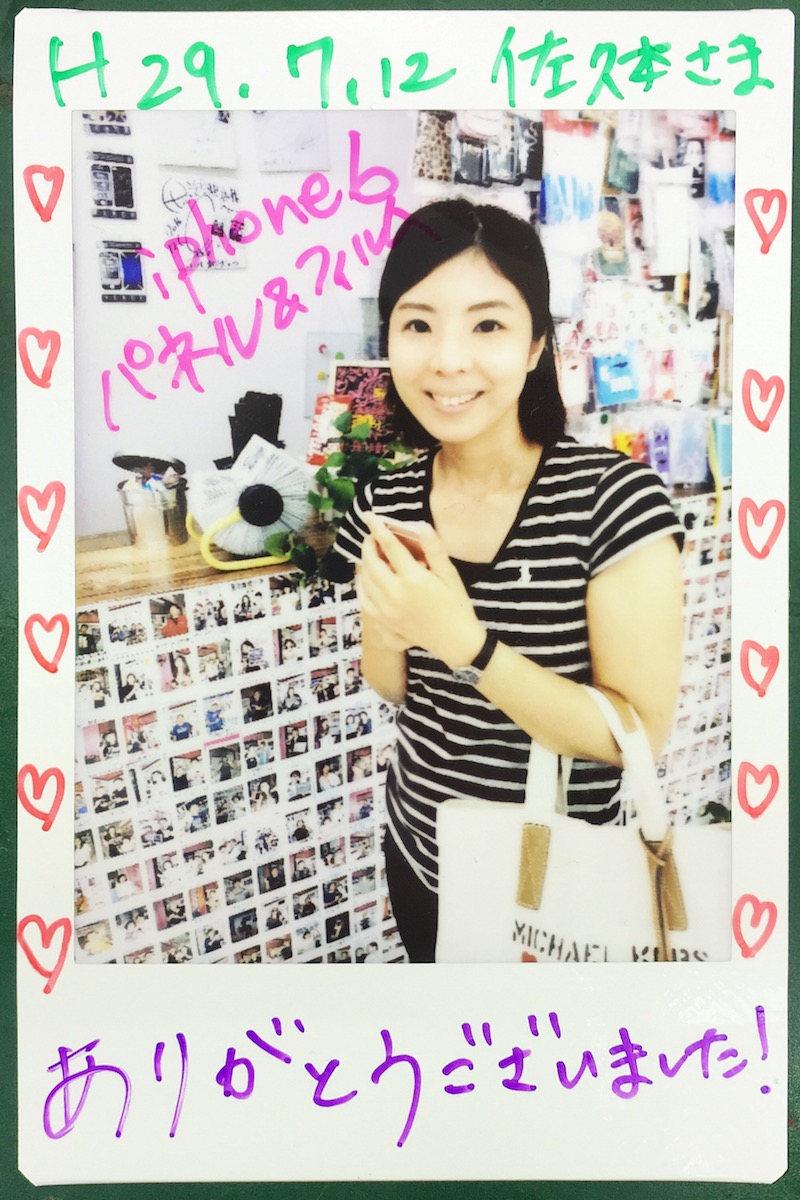 H 29. 7. 12 佐久本さま
iphone6
パネル&フィルム
MICHAEL KORS
ありがとうございました!